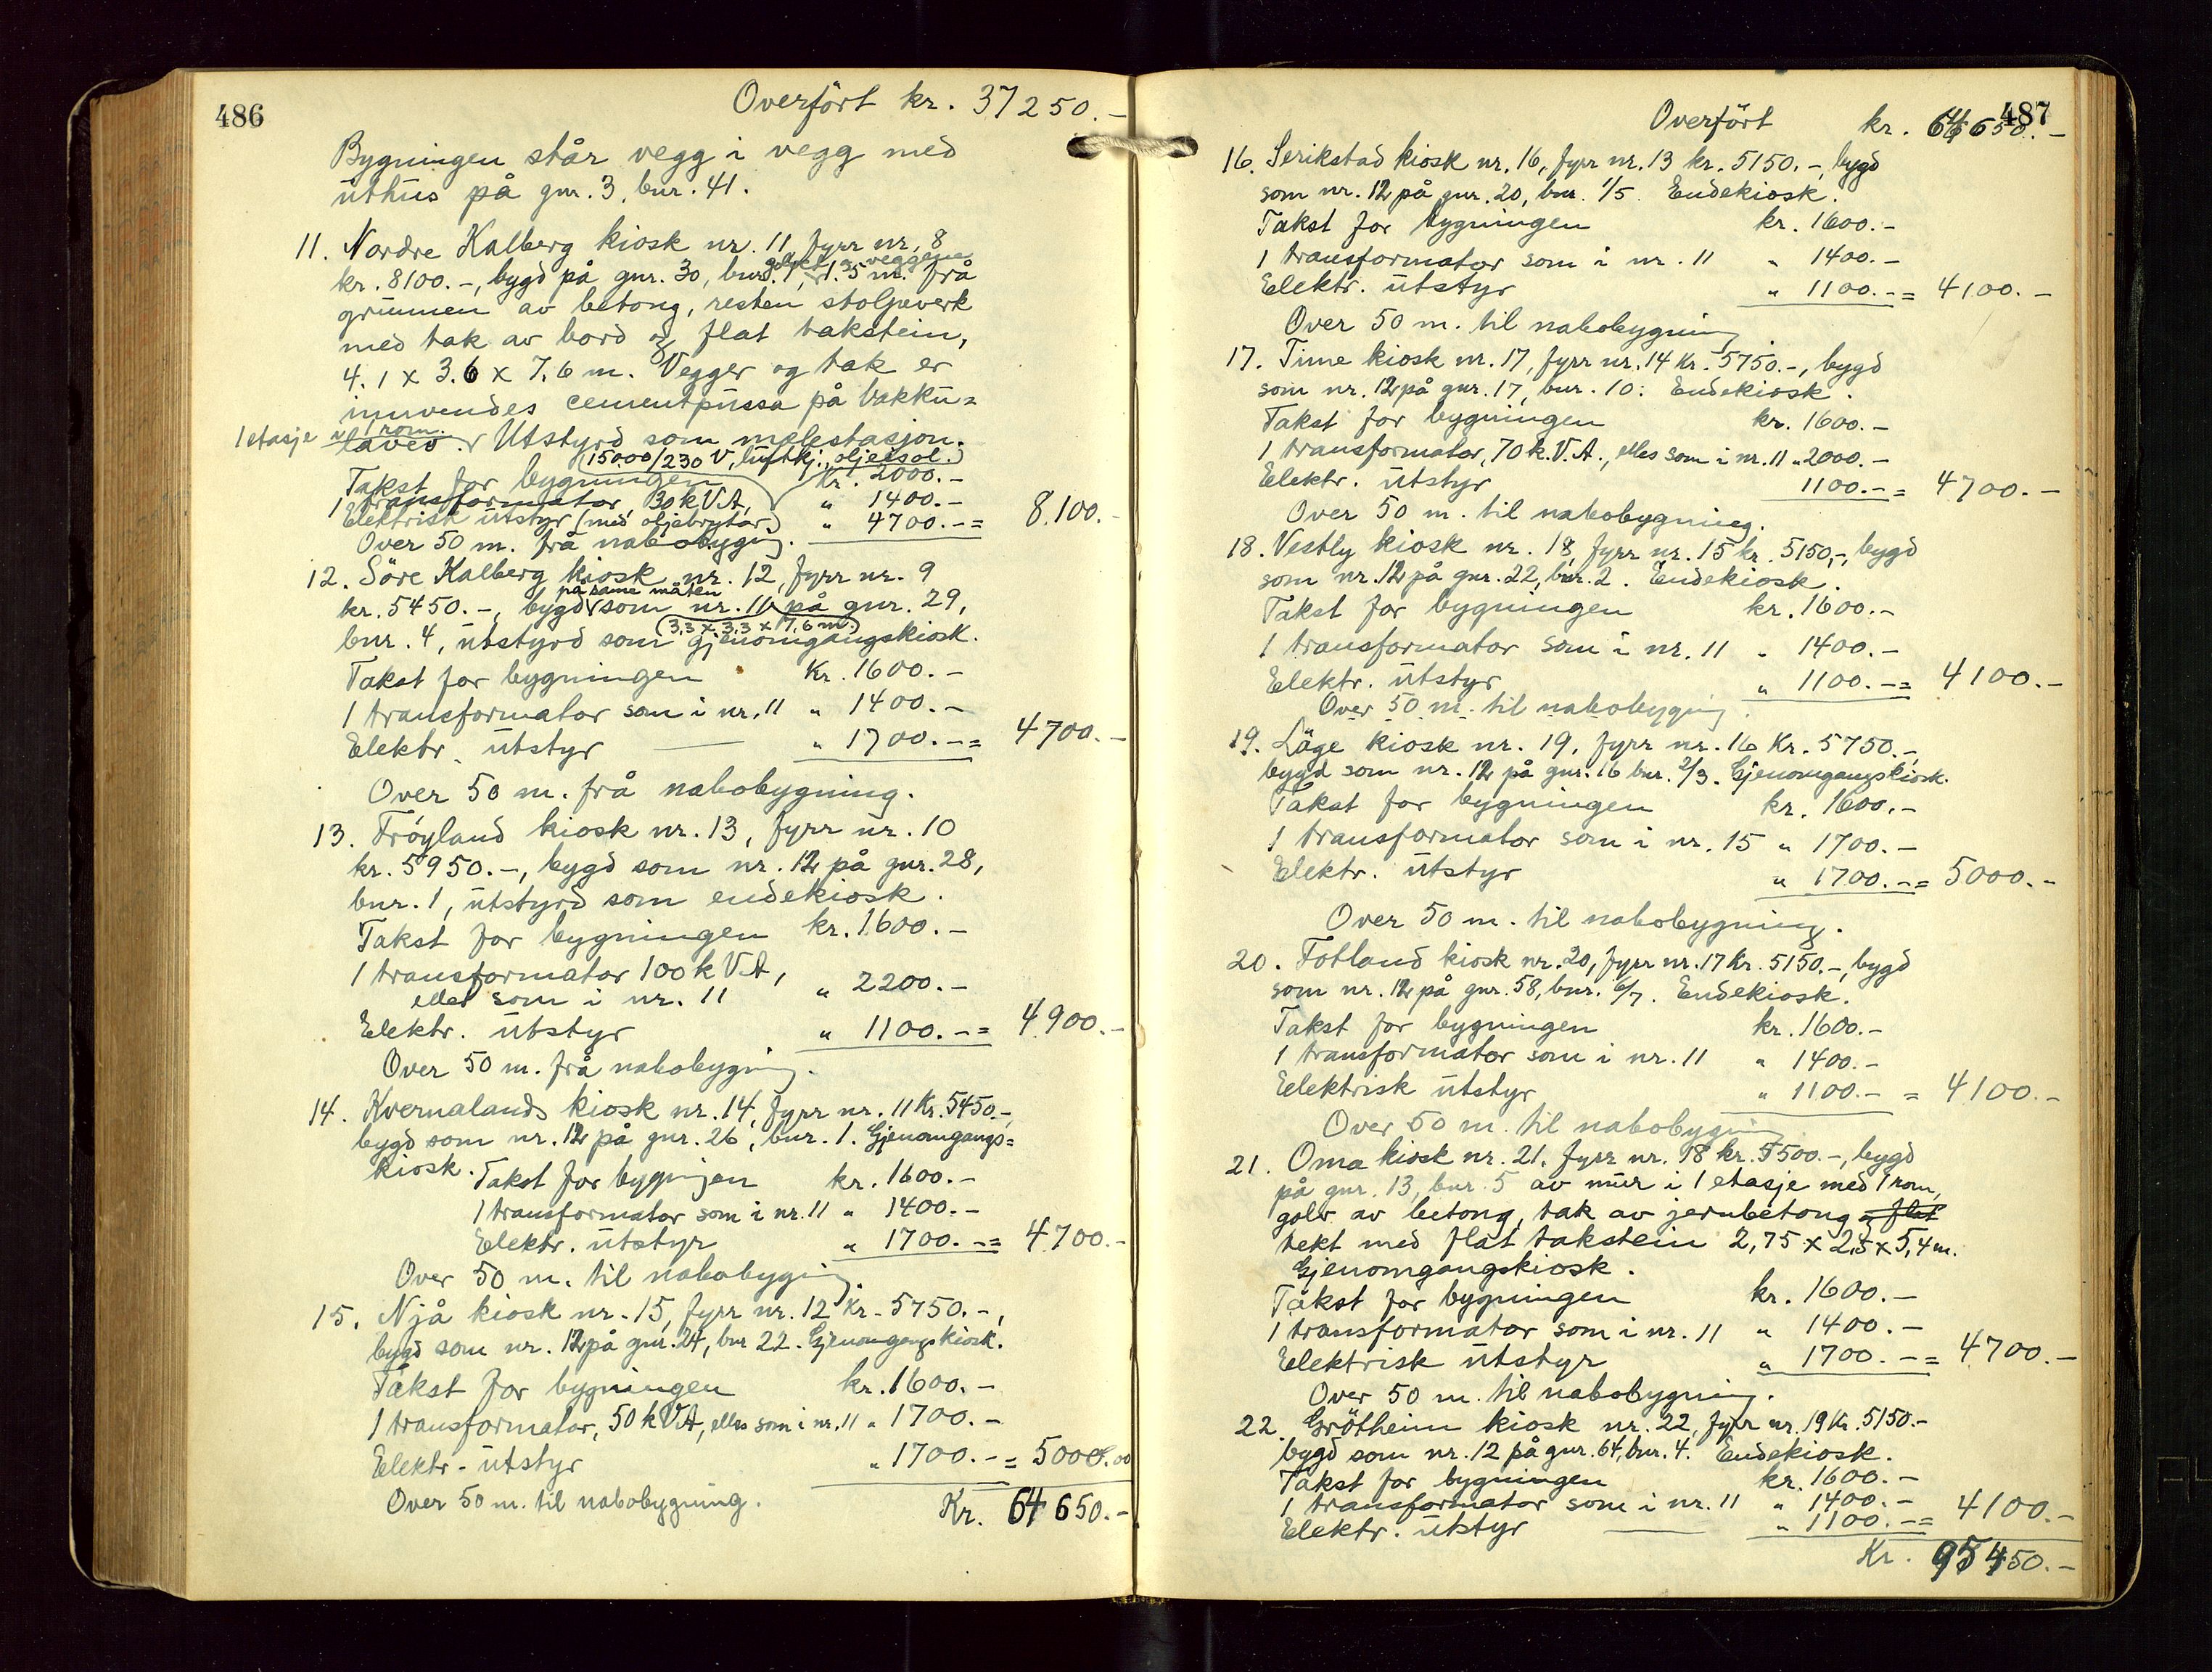 486
Overført kr. 37250.-
Bygningen står vegg i vegg med
uthus på gnr. 3, bnr. 41.
11. Nordre Kalberg kiosk nr. 11, fyrr nr. 8
golvet og veggene
kr. 8100.-, bygd på gnr. 30, bnr. 1, 1.5 m. frå
grunnen av betong, resten stolpeverk
med tak av bord og flat takstein,
4.1 x 3.6 x 7.6 m. Vegger og tak er
innvendes cementpussa på bakku=
1 etasje 1 rom.
laveo. Utstyrd som målestasjon.
(15000/230 V, luftkj., oljeisol.)
Takst for bygningen kr. 2000.-
1 transformator, 30 k VA, " 1400.-
Elektrisk utstyr (med oljebrytar) " 4700.- = 8.100.-
Over 50 m. frå nabobygnig.
12. Søre Kalberg kiosk nr. 12, fyrr nr. 9
på same måten
kr. 5450.-, bygd som nr. 11 på gnr. 29,
(3,3 x 3,3 x 7,6 m.)
bnr. 4, utstyrd som gjenomgangskiosk.
Takst for bygningen Kr. 1600.-
1 transformator som i nr. 11 " 1400.-
Elektr. utstyr " 1700.- = 4700.-
Over 50 m. frå nabobygning.
13. Frøyland kiosk nr. 13, fyrr nr. 10
kr. 5950.-, bygd som nr. 12 på gnr. 28,
bnr. 1, utstyrd som endekiosk.
Takst for bygningen kr. 1600.-
1 transformator 100 k VA,
elles som i nr. 11 " 2200.-
Elektr. utstyr " 1100.- = 4900.-
Over 50 m. frå nabobygnig.
14. Kvernalands kiosk nr. 14, fyrr nr. 11 Kr. 5450.-,
bygd som nr. 12 på gnr. 26, bnr. 1. Gjenomgangs=
kiosk. Takst for bygnijen kr. 1600.-
1 transformator som i nr. 11 " 1400.-
Elektr. utstyr " 1700.- = 4700.-
Over 50 m. til nabobygnig.
15. Njå kiosk nr. 15, fyrr nr. 12 Kr. 5750.-,
bygd som nr. 12 på gnr. 24, bnr 22. Gjenomgangskiosk.
Takst for bygningen kr. 1600.-
1 transformator, 50 k VA, elles som i nr. 11 " 1700.-
Elektr. utstyr " 1700.- = 5000.00
Over 50 m. til nabobygning.
Kr. 64 650.-
487
Overført kr. 64650.-
16. Serikstad kiosk nr. 16, fyrr nr. 13 kr. 5150.-, bygd
som nr. 12 på gnr. 20, bnr. 1/5. Endekiosk.
Takst for bygningen kr. 1600.-
1 transformator som i nr. 11 " 1400.-
Elektr. utstyr " 1100.- = 4100.-
Over 50 m. til nabobygning.
17. Time kiosk nr. 17, fyrr nr. 14 Kr. 5750.-, bygd
som nr. 12 på gnr. 17, bnr. 10: Endekiosk.
Takst for bygningen kr. 1600.-
1 transformator, 70 k.V.A., elles som i nr. 11 " 2000.-
Elektr. utstyr 1100.- = 4700.-
Over 50 m. til nabobygning.
18. Vestly kiosk nr. 18, fyrr nr. 15 kr. 5150,-, bygd
som nr. 12 på gnr. 22, bnr. 2. Endekiosk.
Takst for bygningen kr. 1600.-
1 transformator som i nr. 11 " 1400.-
Elektr. utstyr " 1100.- = 4100.-
Over 50 m. til nabobygnig.
19. Låge kiosk nr. 19, fyrr nr. 16 Kr. 5750.-,
bygd som nr. 12 på gnr. 16 bnr. 2/3. Gjenomgangskiosk.
Takst for bygningen kr. 1600.-
1 transformator som i nr. 15 " 1700.-
Elektr. utstyr " 1700.- = 5000.-
Over 50 m. til nabobygning.
20. Fotland kiosk nr. 20, fyrr nr. 17 Kr. 5150.-, bygd
som nr. 12 på gnr. 58, bnr. 6/7. Endekiosk.
Takst for bygningen kr. 1600.-
1 transformator som i nr. 11 " 1400.-
Elektrisk utstyr " 1100.- = 4100.-
Over 50 m. til nabobygnig
21. Oma kiosk nr. 21, fyrr nr. 18 kr. 5500.-, bygd
på gnr. 13, bnr. 5 av mur i 1 etasje med 1 rom,
golv av betong, tak av jernbetong og flat
tekt med flat takstein 2,75 x 2,5 x 5,4 m.
Gjenomgangskiosk.
Takst for bygningen kr. 1600.-
1 transformator som i nr. 11 " 1400.-
Elektrisk utstyr " 1700.- = 4700.-
Over 50 m. til nabobygning.
22. Grøtheim kiosk nr. 22, fyrr nr. 19 Kr. 5150.-
bygd som nr. 12 på gnr. 64, bnr. 4. Endekiosk.
Takst for bygningen kr. 1600.-
1 transformator som i nr. 11 " 1400.-
Elektr. utstyr " 1100.- = 4100.-
Kr. 95450.-